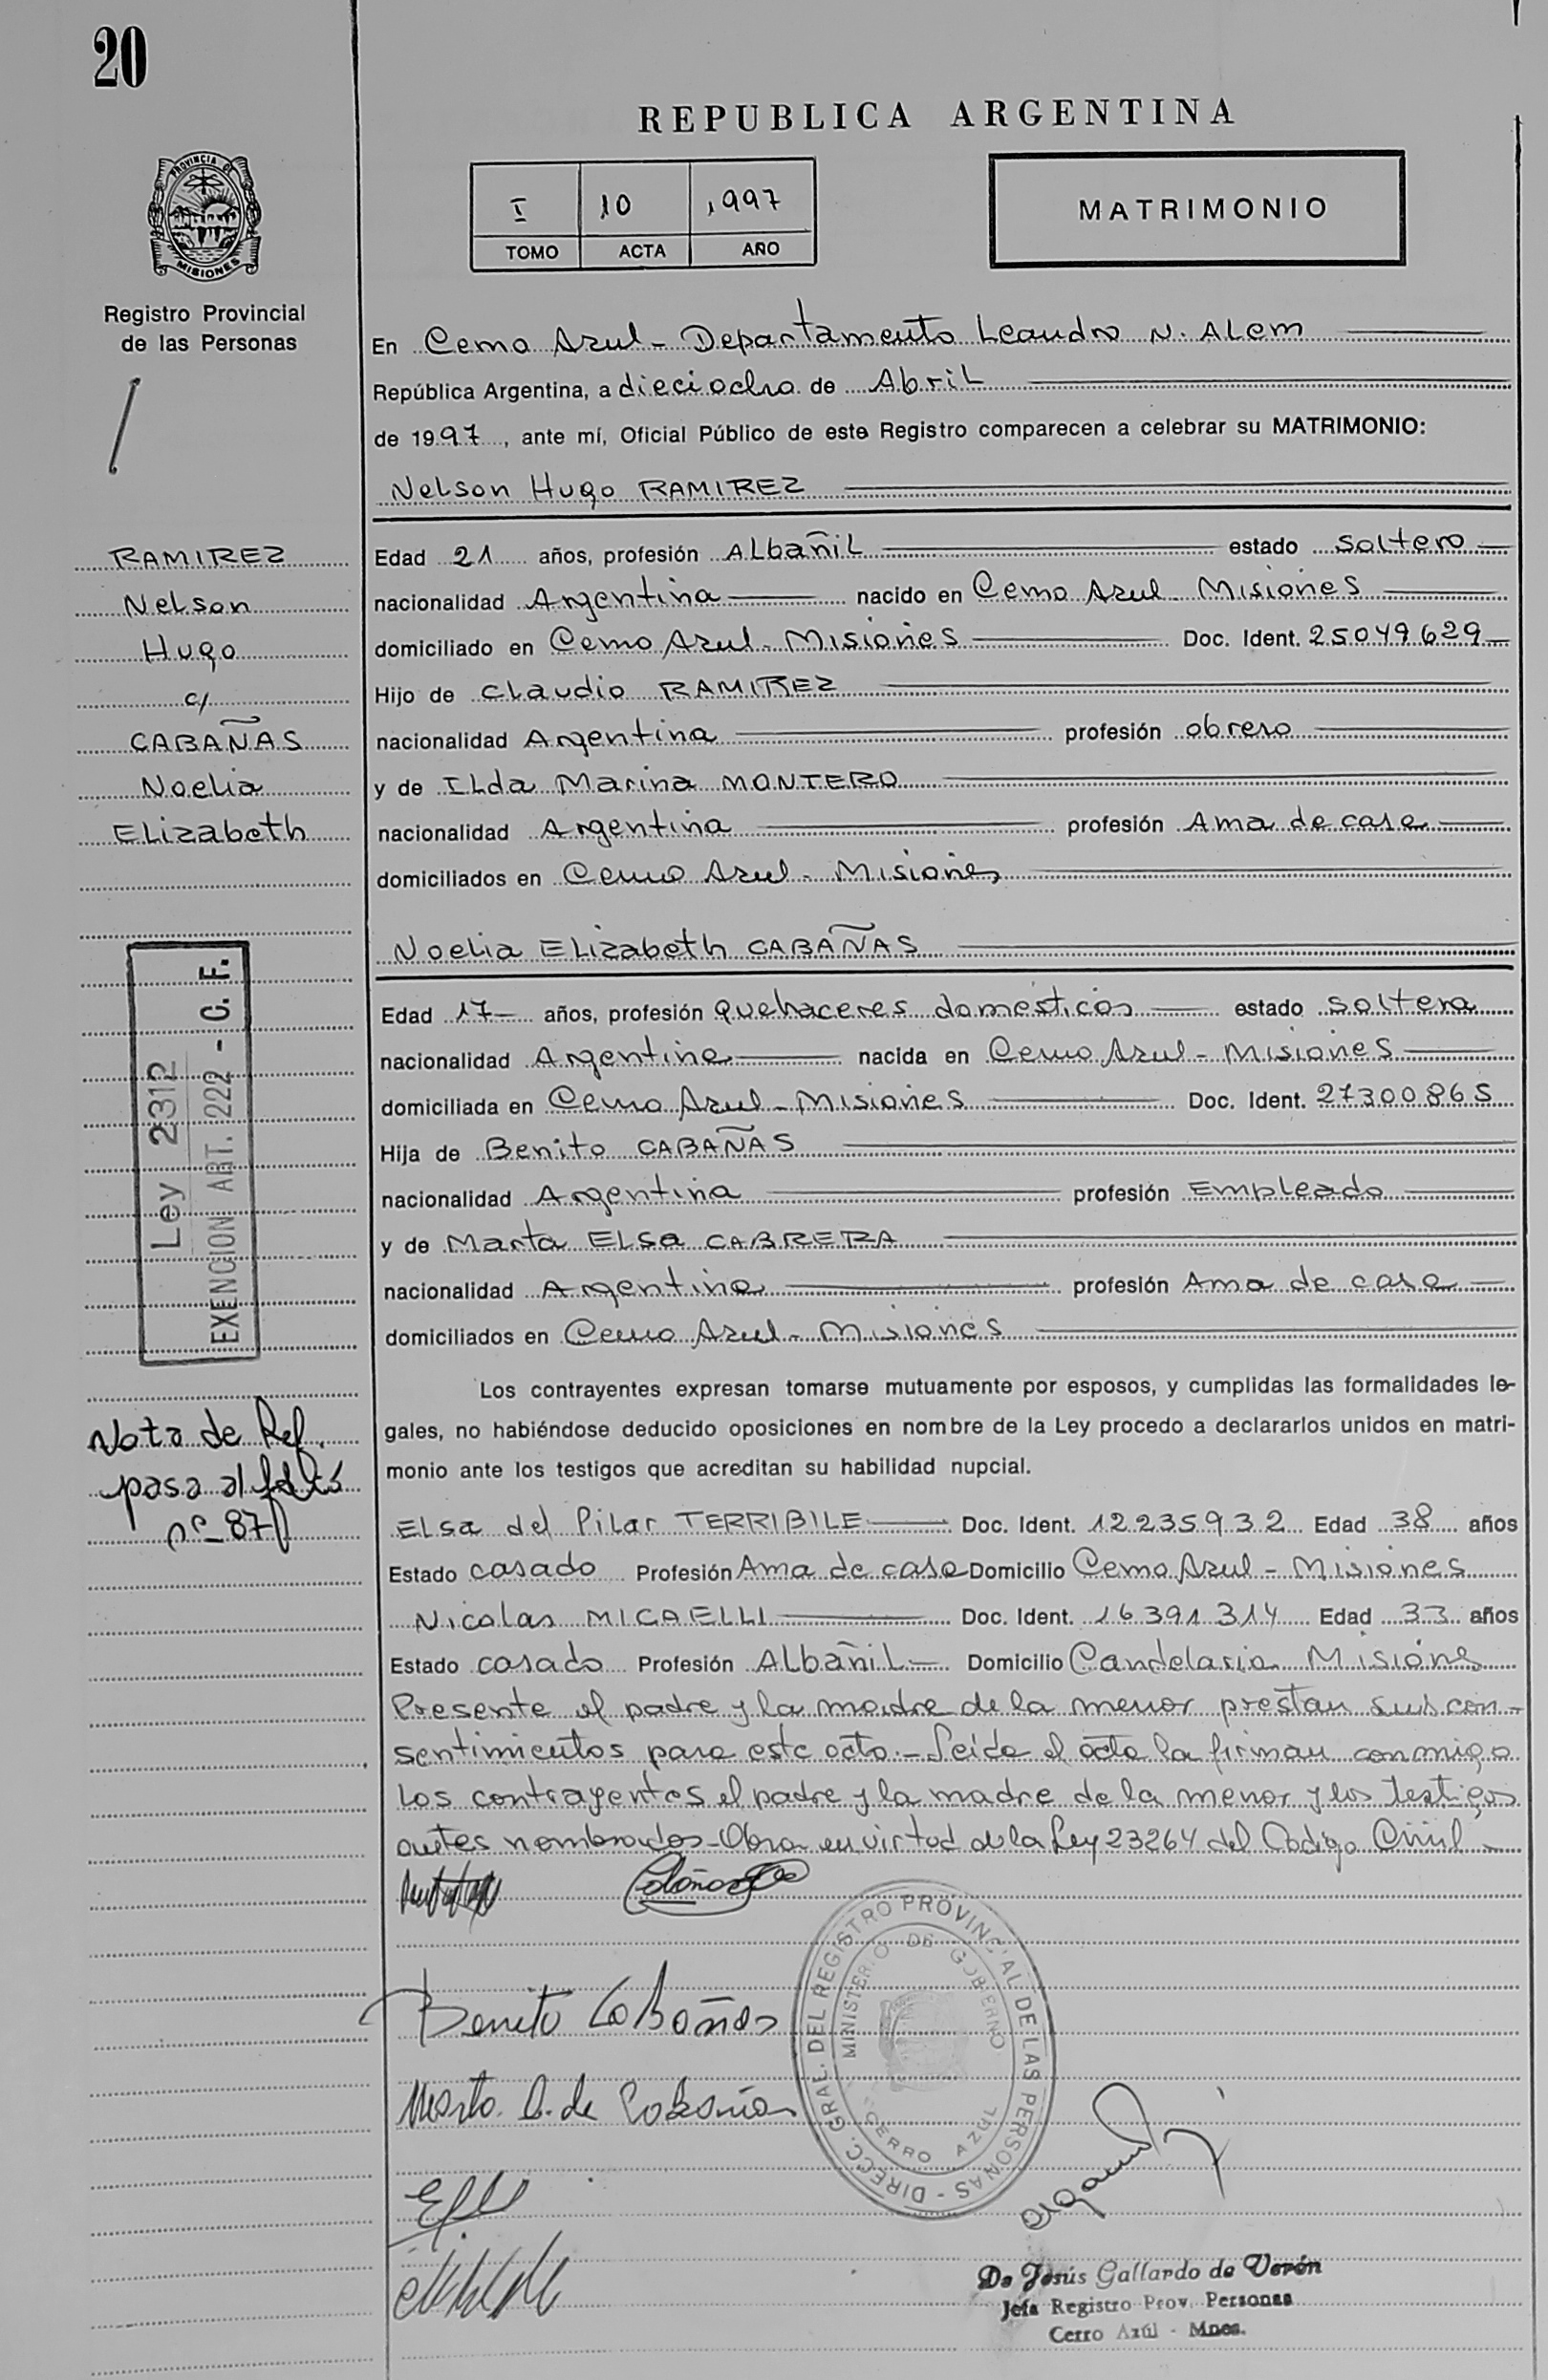 20
REPUBLICA ARGENTINA
PROVINCIA DE
MISIONES
Registro Provincial
de las Personas
I 10 1997
TOMO ACTA AÑO
MATRIMONIO
En Cerro Azul - Departamento Leandro N. Alem
República Argentina, a dieciocho de Abril
de 1997, ante mí, Oficial Público de este Registro comparecen a celebrar su MATRIMONIO:
Nelson Hugo RAMIREZ
RAMIREZ
Nelson
Hugo
c/
CABAÑAS
Noelia
Elizabeth
Edad 21 años, profesión Albañil estado soltero
nacionalidad Argentina nacido en Cerro Azul - Misiones
domiciliado en Cerro Azul - Misiones Doc. Ident. 25049629
Hijo de Claudio RAMIREZ
nacionalidad Argentina profesión obrero
y de Ilda Marina MONTERO
nacionalidad Argentina profesión Ama de casa
domiciliados en Cerro Azul - Misiones
Noelia Elizabeth CABAÑAS
Edad 17 años, profesión quehaceres domésticos estado soltera
nacionalidad Argentina nacida en Cerro Azul - Misiones
domiciliada en Cerro Azul - Misiones Doc. Ident. 27300865
Hija de Benito CABAÑAS
nacionalidad Argentina profesión Empleado
y de Marta Elsa CABRERA
nacionalidad Argentina profesión Ama de casa
domiciliados en Cerro Azul - Misiones
Ley 2312
EXENCION ART. 222 - C. F.
Nota de Ref.
pasa al folio
nº 87
Los contrayentes expresan tomarse mutuamente por esposos, y cumplidas las formalidades le-
gales, no habiéndose deducido oposiciones en nombre de la Ley procedo a declararlos unidos en matri-
monio ante los testigos que acreditan su habilidad nupcial.
Elsa del Pilar TERRIBILE Doc. Ident. 12235932 Edad 38 años
Estado casado Profesión Ama de casa Domicilio Cerro Azul - Misiones
Nicolas MICAELLI Doc. Ident. 16.391.314 Edad 33 años
Estado casado Profesión Albañil Domicilio Candelaria Misiones
Presente el padre y la madre de la menor prestan sus con-
sentimientos para este acto.- Leida el acta la firman conmigo
los contrayentes el padre y la madre de la menor y los testigos
antes nombrados - Obra en virtud de la Ley 23264 del Codigo Civil -
Benito Cabañas
Marta C. de Cabañas
DIRECC. GRAL. DEL REGISTRO PROVINCIAL DE LAS PERSONAS -
MINISTERIO DE GOBIERNO
CERRO AZUL
De Jesús Gallardo de Verón
Jefa Registro Prov. Personas
Cerro Azúl - Mnes.